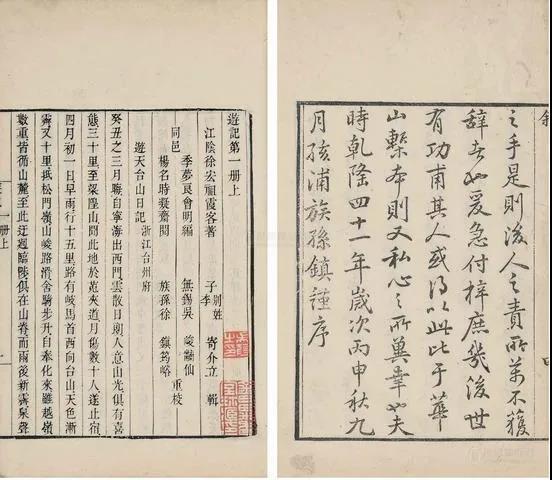 之手是則後人之責所萬不獲
辭者也爰急付梓庶幾後世
有功甫其人或得以此比于華
山槧本則又私心之所冀幸也夫
時乾隆四十一年歲次丙申秋九
月孩浦族孫鎮謹序
遊記第一冊上
江陰徐宏祖霞客著 子李別姓寄介立 輯
季夢良會明編 無錫吳 峻黼仙
同邑 重校
楊名時凝齋閱 族孫徐 鎮筠峪
遊天台山日記 浙江台州府
癸丑之三月晦自寧海出西門雲散日朗人意山光俱有喜
態三十里至梁隍山聞此地於菟夾道月傷數十人遂止宿
四月初一日早雨行十五里路有岐馬首西向台山天色漸
霽又十里抵松門嶺山峻路滑舍騎步升自奉化來雖越嶺
數重皆循山麓至此迂迴臨陟俱在山脊而雨後新霽泉聲